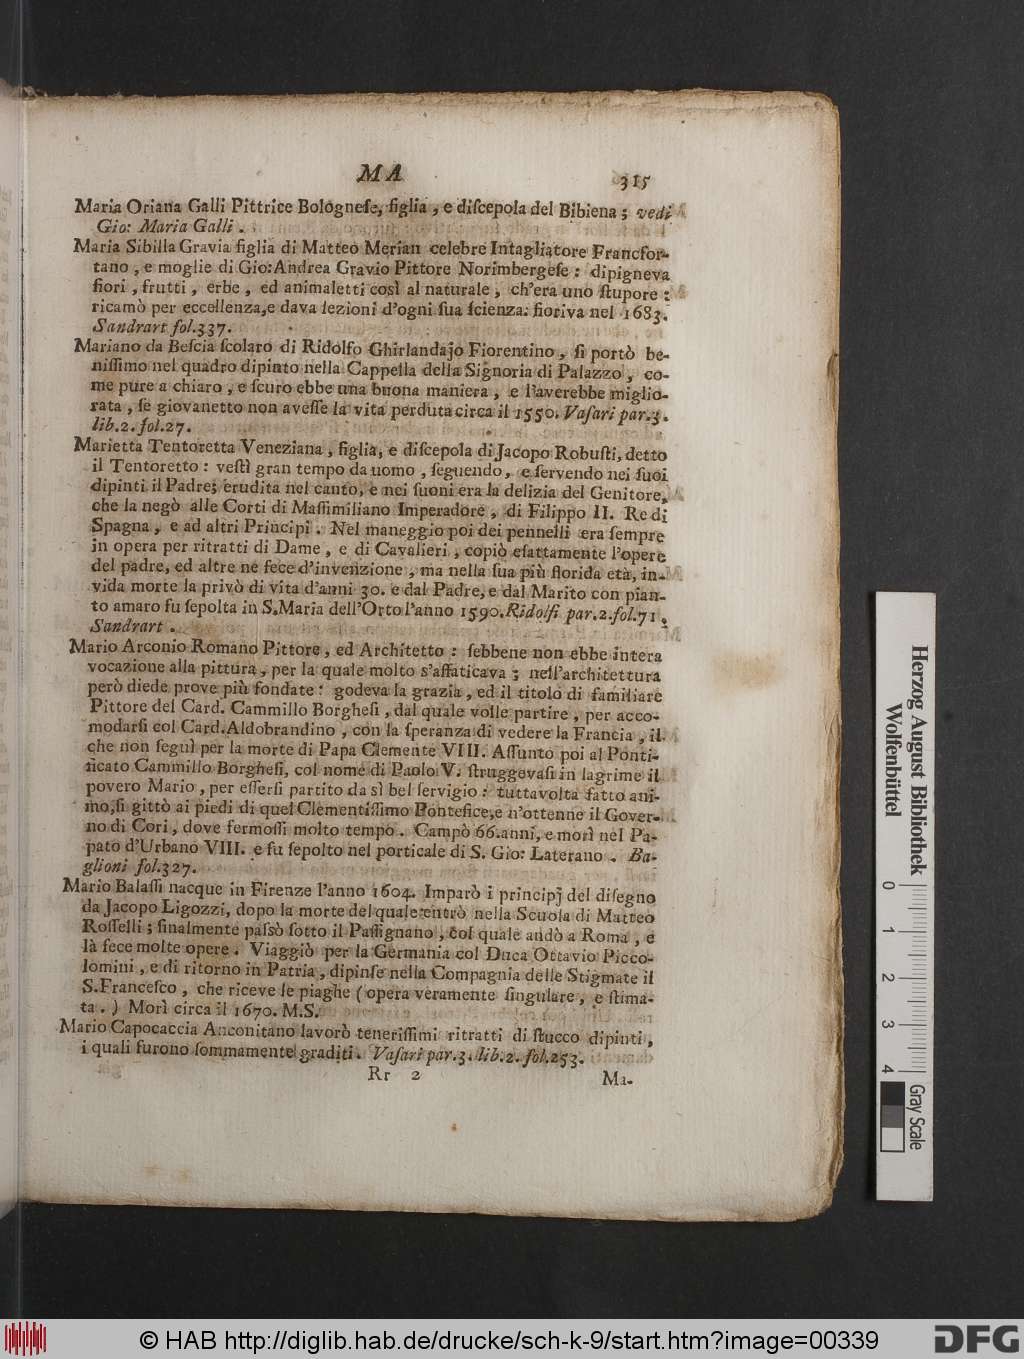 MA 315
Maria Oriana Galli Pittrice Bolognese, figlia, e discepola del Bibiena; vedi
Gio: Maria Galli.
Maria Sibilla Gravia figlia di Matteo Merian celebre Intagliatore Francfor-
tano, e moglie di Gio: Andrea Gravio Pittore Norimbergese: dipigneva
fiori, frutti, erbe, ed animaletti così al naturale, ch'era uno stupore:
ricamò per eccellenza, e dava lezioni d'ogni sua scienza: fioriva nel 1683.
Sandrart fol.337.
Mariano da Bescia scolaro di Ridolfo Ghirlandajo Fiorentino, si portò be-
nissimo nel quadro dipinto nella Cappella della Signoria di Palazzo, co-
me pure a chiaro, e scuro ebbe una buona maniera, e l'averebbe miglio-
rata, se giovanetto non avesse la vita perduta circa il 1550. Vasari par.3.
lib.2. fol.27.
Marietta Tentoretta Veneziana, figlia, e discepola di Jacopo Robusti, detto
il Tentoretto: vestì gran tempo da uomo, seguendo, e servendo nei suoi
dipinti il Padre; erudita nel canto, e nei suoni era la delizia del Genitore,
che la negò alle Corti di Massimiliano Imperadore, di Filippo II. Re di
Spagna, e ad altri Principi. Nel maneggio poi dei pennelli era sempre
in opera per ritratti di Dame, e di Cavalieri, copiò esattamente l'opere
del padre, ed altre ne fece d'invenzione, ma nella sua più florida età, in-
vida morte la privò di vita d'anni 30. e dal Padre, e dal Marito con pian-
to amaro fu sepolta in S. Maria dell'Orto l'anno 1590. Ridolfi par.2. fol.71.
Sandrart.
Mario Arconio Romano Pittore, ed Architetto: sebbene non ebbe intera
vocazione alla pittura, per la quale molto s'affaticava; nell'architettura
però diede prove più fondate: godeva la grazia, ed il titolo di familiare
Pittore del Card. Cammillo Borghesi, dal quale volle partire, per acco-
modarsi col Card. Aldobrandino, con la speranza di vedere la Francia, il
che non seguì per la morte di Papa Clemente VIII. Assunto poi al Ponti-
ficato Cammillo Borghesi, col nome di Paolo V. struggevasi in lagrime il
povero Mario, per essersi partito da sì bel servigio: tuttavolta fatto ani-
mo, si gittò ai piedi di quel Clementissimo Pontefice, e n'ottenne il Gover-
no di Cori, dove fermossi molto tempo. Campò 66. anni, e morì nel Pa-
pato d'Urbano VIII. e fu sepolto nel porticale di S. Gio: Laterano. Ba-
glioni fol.327.
Mario Balassi nacque in Firenze l'anno 1604. Imparò i principj del disegno
da Jacopo Ligozzi, dopo la morte del quale entrò nella Scuola di Matteo
Rosselli; finalmente passò sotto il Passignano, col quale andò a Roma, e
là fece molte opere. Viaggiò per la Germania col Duca Ottavio Picco-
lomini, e di ritorno in Patria, dipinse nella Compagnia delle Stigmate il
S. Francesco, che riceve le piaghe (opera veramente singulare, e stima-
ta.) Morì circa il 1670. M.S.
Mario Capocaccia Anconitano lavorò tenerissimi ritratti di stucco dipinti,
i quali furono sommamente graditi. Vasari par.3. lib.2. fol.253.
Rr 2 Ma-
Herzog August Bibliothek
Wolfenbüttel
0 1 2 3 4
Gray Scale
© HAB http://diglib.hab.de/drucke/sch-k-9/start.htm?image=00339
DFG